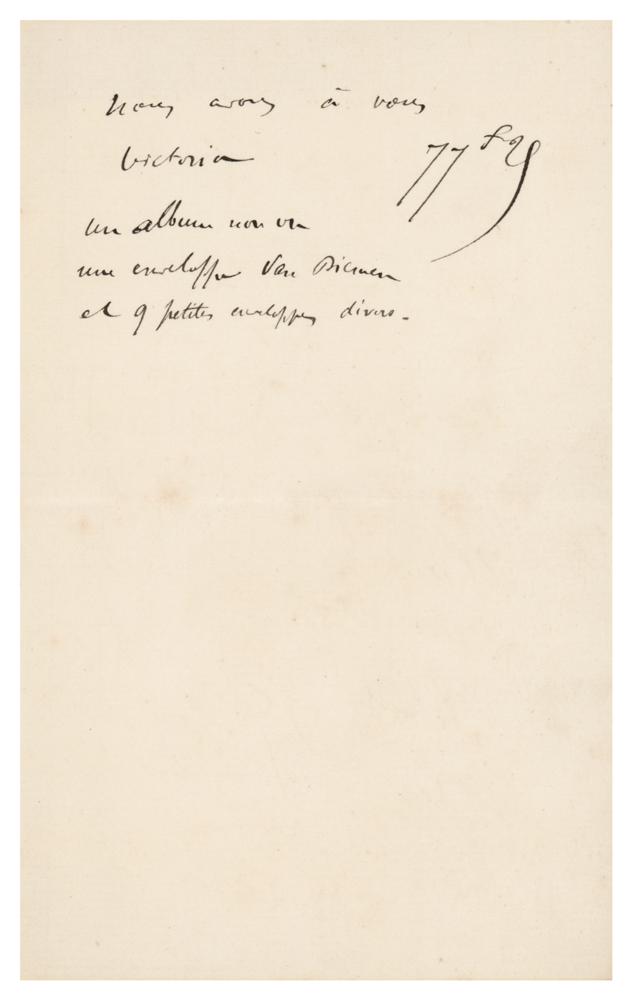 nous avons à vous
Victoria 77
un album non vu
une enveloppe Van Diemen
et 9 petites enveloppes divers.